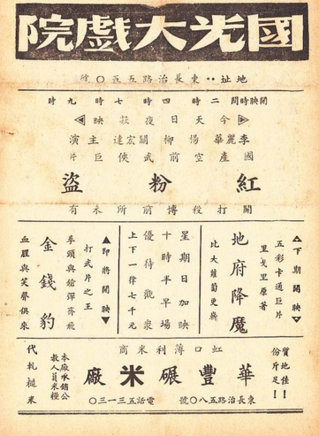 國光大戲院
地址：東長治路五五〇號
開映時間 二時 四時 七時 九時
今天日夜獻映
李麗華 楊柳 關宏達 主演
國產空前武俠巨片
紅粉盜
開打投博前所未有
下期開映
五彩卡通巨片
里戈里原著
地府降魔
星期日加映
十時半早場
優待觀眾
上下一律七千元
即將開映
打武片之王
拳頭與槍彈齊飛
金錢豹
血腥與笑聲俱來
質地佳！
份斤足！
虹口薄利米商
華豐碾米廠
東長治路五八〇號
電話五三一三〇
本廠承銷公
教人員米糧
代軋糙米